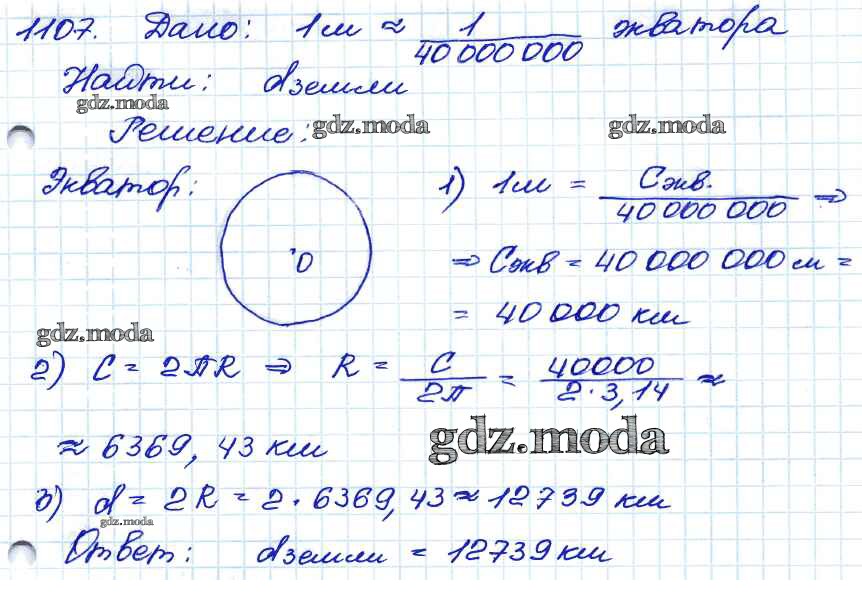 1107. Дано: 1м ≈ 1/40 000 000 экватора
Найти: dземли
gdz.moda
Решение: gdz.moda gdz.moda
Экватор: 1) 1м = Cэкв./40 000 000 ⇒
O ⇒ Cэкв = 40 000 000 м =
= 40 000 км
gdz.moda
2) C = 2πR ⇒ R = C/2π = 40000/2·3,14 ≈
≈ 6369,43 км gdz.moda
3) d = 2R = 2·6369,43 ≈ 12739 км
gdz.moda
Ответ: dземли = 12739 км